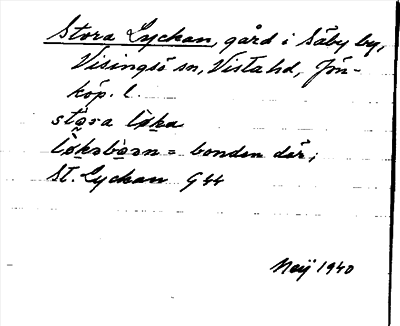 Stora Lyckan, gård i Säby by,
Visingsö sn, Vista hd, Jön-
köp. l.
stɷ̀ra lø̀ka
lø̀kəbɷ̀ən = bonden där;
St. Lyckan G 44
Meij 1940